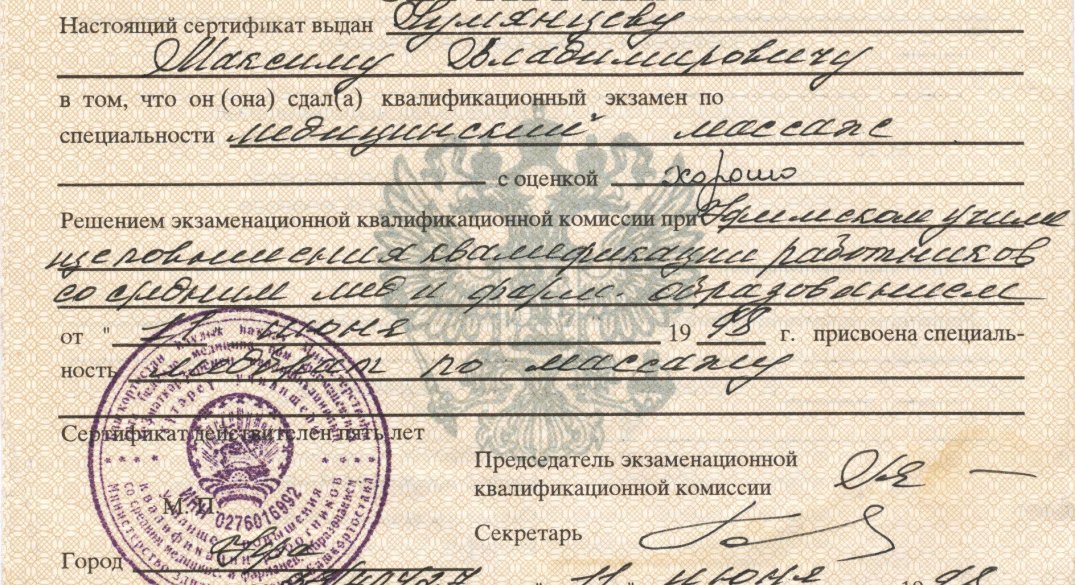 Настоящий сертификат выдан Румянцеву
Максиму Владимировичу
в том, что он (она) сдал(а) квалификационный экзамен по
специальности медицинский массаж
с оценкой хорошо
Решением экзаменационной квалификационной комиссии при Уфимском учили
ще повышения квалификации работников
со средним мед и фарм. образованием
от " 11 июня 1998 г. присвоена специаль-
ность медбрат по массажу
Сертификат действителен пять лет
Председатель экзаменационной
квалификационной комиссии
М. П.
ИНН 0276016992
Секретарь
Город Уфа
11 июня 1998